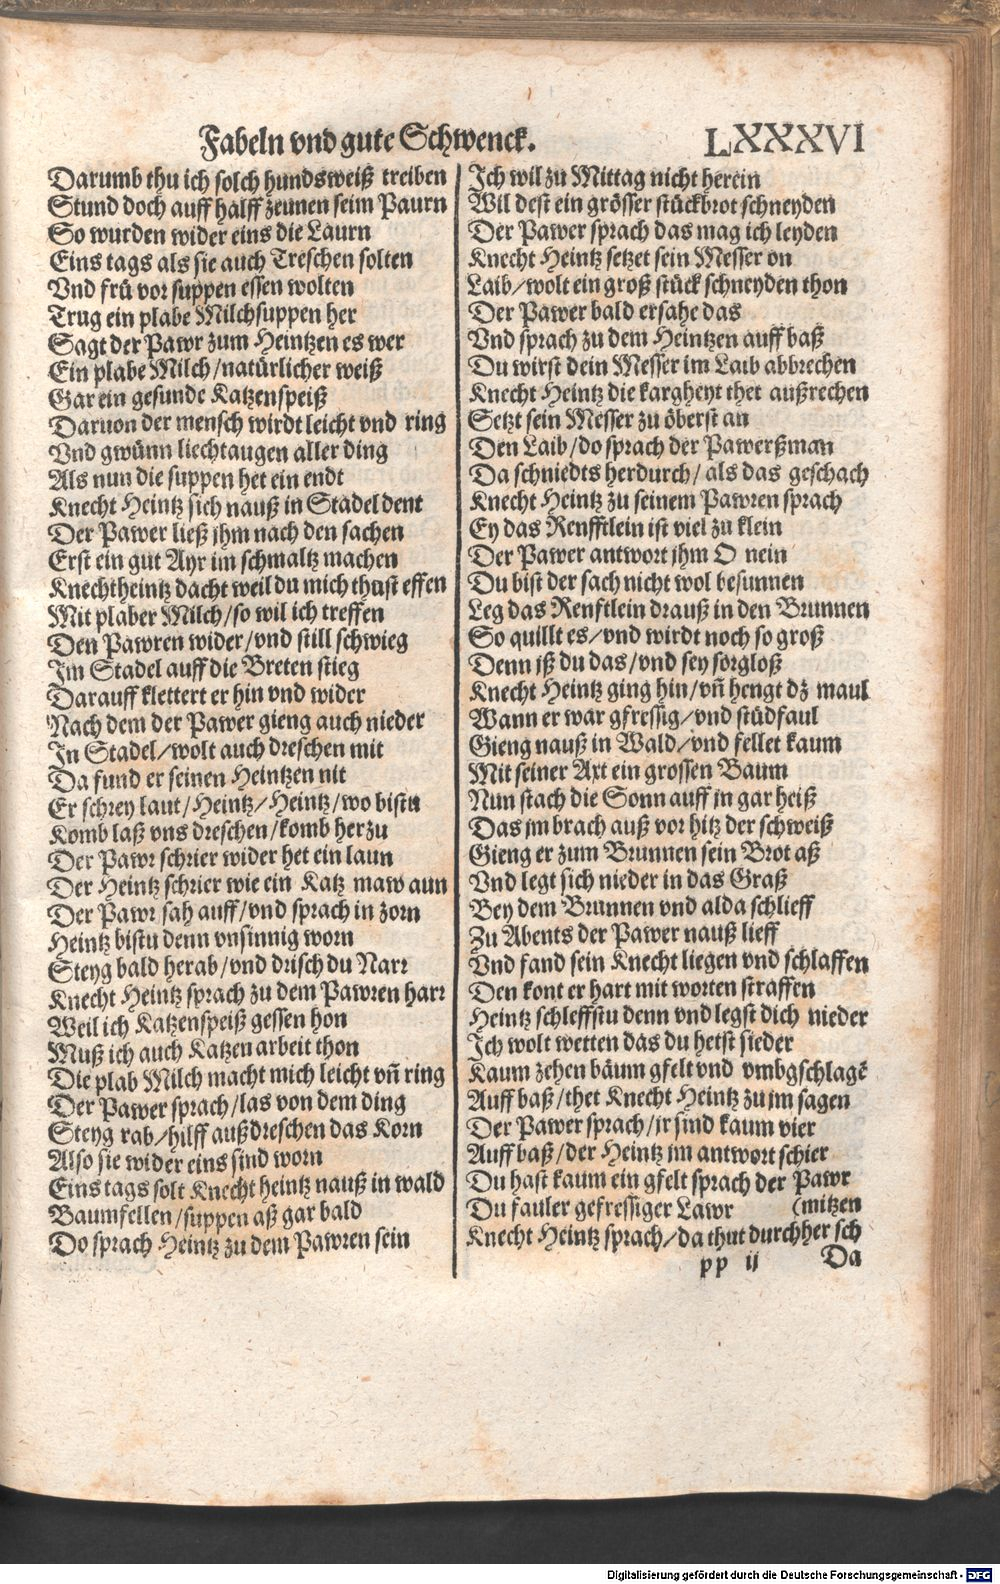 Fabeln vnd gute Schwenck.
LXXXVI
Darumb thu ich solch hundsweiß treiben
Stund doch auff halff zeunen seim Paurn
So wurden wider eins die Laurn
Eins tags als sie auch Treschen solten
Vnd frů vor suppen essen wolten
Trug ein plabe Milchsuppen her
Sagt der Pawr zum Heintzen es wer
Ein plabe Milch/natürlicher weiß
Gar ein gesunde Katzenspeiß
Daruon der mensch wirdt leicht vnd ring
Vnd gwünn liechtaugen aller ding
Als nun die suppen het ein endt
Knecht Heintz sich nauß in Stadel dent
Der Pawer ließ jhm nach den sachen
Erst ein gut Ayr im schmaltz machen
Knechtheintz dacht weil du mich thust effen
Mit plaber Milch/so wil ich treffen
Den Pawren wider/vnd still schwieg
Im Stadel auff die Breten stieg
Darauff klettert er hin vnd wider
Nach dem der Pawer gieng auch nieder
In Stadel/wolt auch dreschen mit
Da fund er seinen Heintzen nit
Er schrey laut/Heintz/Heintz/wo bistu
Komb laß vns dreschen/komb herzu
Der Pawr schrier wider het ein laun
Der Heintz schrier wie ein Katz maw aun
Der Pawr sah auff/vnd sprach in zorn
Heintz bistu denn vnsinnig worn
Steyg bald herab/vnd drisch du Narr
Knecht Heintz sprach zu dem Pawren harr
Weil ich Katzenspeiß gessen hon
Muß ich auch Katzen arbeit thon
Die plab Milch macht mich leicht vñ ring
Der Pawer sprach/las von dem ding
Steyg rab/hilff außdreschen das Korn
Also sie wider eins sind worn
Eins tags solt Knecht heintz nauß in wald
Baumfellen/suppen aß gar bald
Do sprach Heintz zu dem Pawren sein
Ich wil zu Mittag nicht herein
Wil dest ein grösser stückbrot schneyden
Der Pawer sprach das mag ich leyden
Knecht Heintz setzet sein Messer on
Laib/wolt ein groß stück schneyden thon
Der Pawer bald ersahe das
Vnd sprach zu dem Heintzen auff baß
Du wirst dein Messer im Laib abbrechen
Knecht Heintz die kargheyt thet außrechen
Setzt sein Messer zu öberst an
Den Laib/do sprach der Pawerßman
Da schniedts herdurch/als das geschach
Knecht Heintz zu seinem Pawren sprach
Ey das Renfftlein ist viel zu klein
Der Pawer antwort jhm O nein
Du bist der sach nicht wol besunnen
Leg das Renftlein drauß in den Brunnen
So quillt es/vnd wirdt noch so groß
Denn iß du das/vnd sey sorgloß
Knecht Heintz ging hin/vñ hengt dz maul
Wann er war gfressig/vnd stüdfaul
Gieng nauß in Wald/vnd fellet kaum
Mit seiner Axt ein grossen Baum
Nun stach die Sonn auff jn gar heiß
Das jm brach auß vor hitz der schweiß
Gieng er zum Brunnen sein Brot aß
Vnd legt sich nieder in das Graß
Bey dem Brunnen vnd alda schlieff
Zu Abents der Pawer nauß lieff
Vnd fand sein Knecht liegen vnd schlaffen
Den kont er hart mit worten straffen
Heintz schleffstu denn vnd legst dich nieder
Ich wolt wetten das du hetst sieder
Kaum zehen bäum gfelt vnd vmbgschlagē
Auff baß/thet Knecht Heintz zu jm sagen
Der Pawer sprach/jr sind kaum vier
Auff baß/der Heintz jm antwort schier
Du hast kaum ein gfelt sprach der Pawr
Du fauler gefressiger Lawr (mitzen
Knecht Heintz sprach/da thut durchher sch
pp ij Da
Digitalisierung gefördert durch die Deutsche Forschungsgemeinschaft - DFG